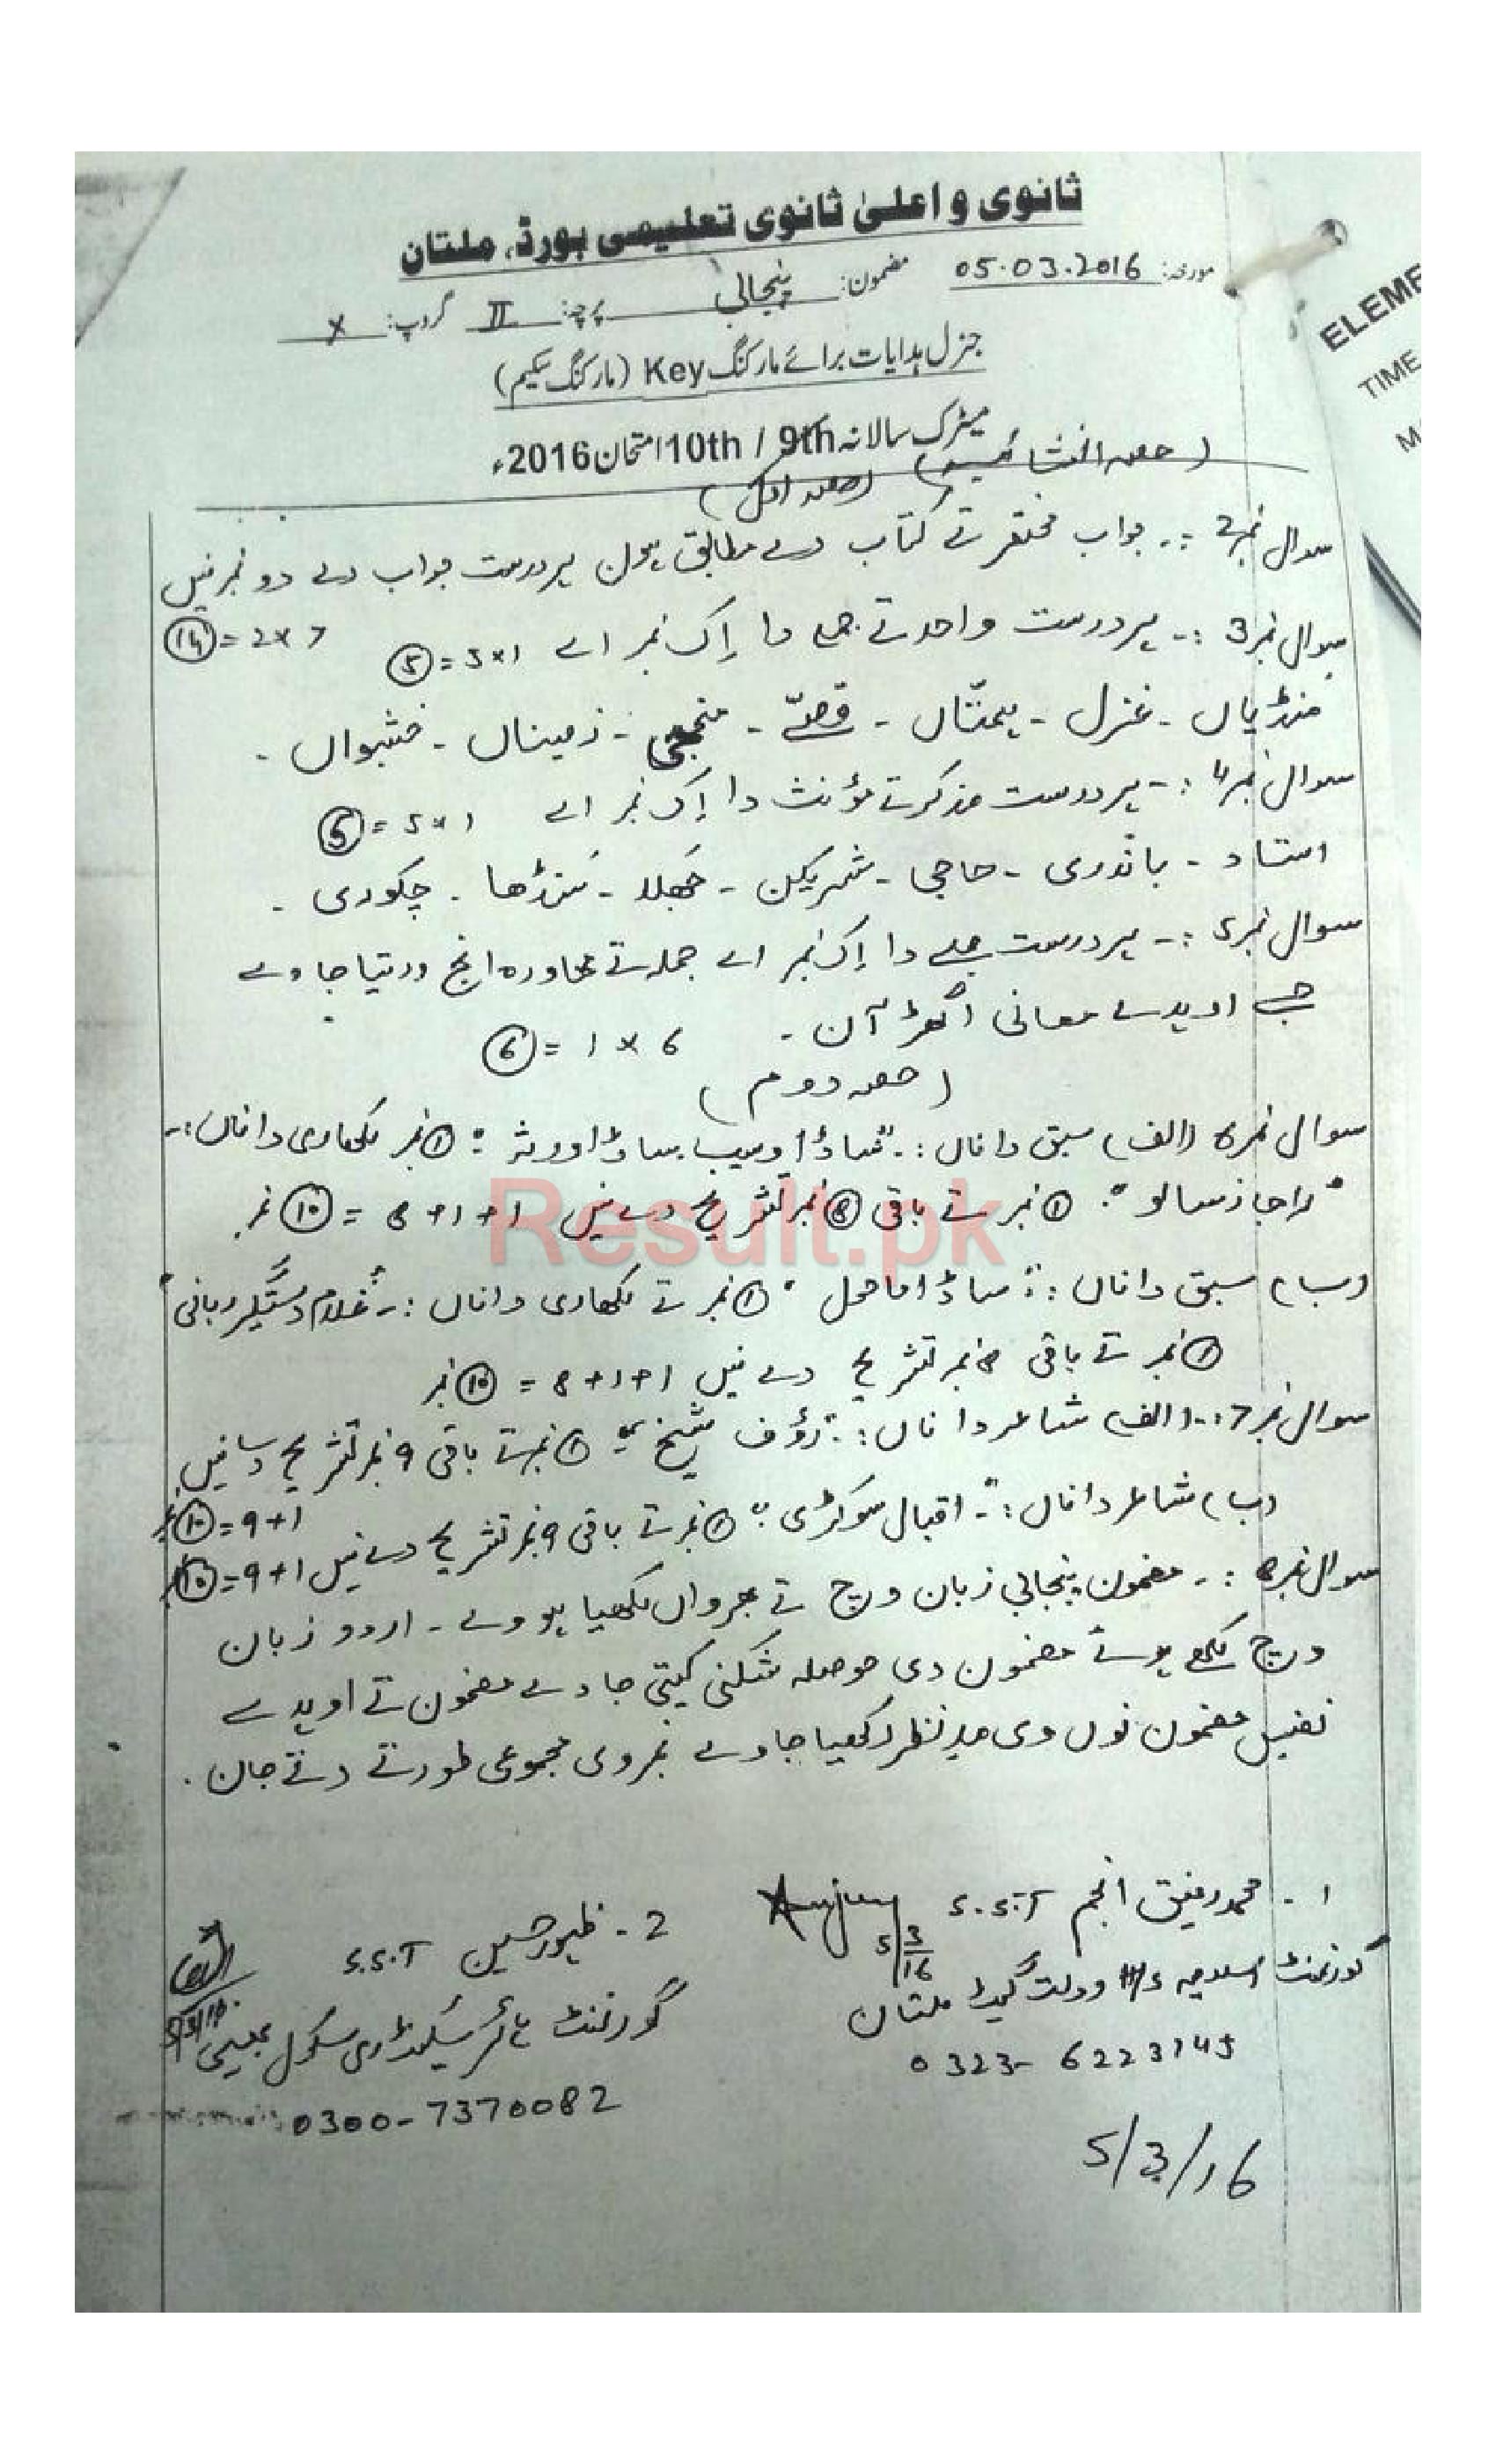 ثانوی و اعلیٰ ثانوی تعلیمی بورڈ، ملتان
مورخہ: 05.03.2016 مضمون: پنجابی پرچہ: II گروپ: x
جنرل ہدایات برائے مارکنگ Key (مارکنگ سکیم)
میٹرک سالانہ 10th / 9th امتحان 2016ء
(حصہ انشائیہ) (حصہ اول)
سوال نمبر 2 :- جواب مختصر تے کتاب دے مطابق ہون ہر درست جواب دے دو نمبر نیں
14 = 2x7
سوال نمبر 3 :- ہر درست واحد تے جمع دا اِک نمبر اے 5 = 5x1
منڈیاں - غزل - ہمتّاں - قصّے - منجھی - زمیناں - خشبواں -
سوال نمبر 4 :- ہر درست مذکر تے مؤنث دا اِک نمبر اے 5 = 5x1
استاد - باندری - حاجی - شریکن - جھلا - سنڈھا - چکوری -
سوال نمبر 5 :- ہر درست جملے دا اِک نمبر اے جملہ تے محاورہ انج ورتیا جاوے
جے اوہدے معانی اگھڑ آن - 6 = 1x6
(حصہ دوم)
سوال نمبر 6 (الف) سبق دا ناں :- "ساڈا وسیب ساڈا ورثہ" 1 نمبر لکھاری دا ناں :-
"راجا رسالو" 1 نمبر تے باقی 8 نمبر تشریح دے نیں 1+1+8 = 10 نمبر
(ب) سبق دا ناں :- "ساڈا ماحول" 1 نمبر تے لکھاری دا ناں :- "غلام دستگیر ربانی"
1 نمبر تے باقی 8 نمبر تشریح دے نیں 1+1+8 = 10 نمبر
سوال نمبر 7 :- (الف) شاعر دا ناں :- "رؤف شیخ" 1 نمبر تے باقی 9 نمبر تشریح دے نیں
1+9 = 10 نمبر
(ب) شاعر دا ناں :- "اقبال سوکڑی" 1 نمبر تے باقی 9 نمبر تشریح دے نیں 1+9 = 10
سوال نمبر 8 :- مضمون پنجابی زبان وچ تے لکھیا ہووے - اردو زبان
وچ لکھے ہوئے مضمون دی حوصلہ شکنی کیتی جاوے مضمون تے اوہدے
نفسِ مضمون نوں وی مدِنظر رکھیا جاوے نمبر وی مجموعی طور تے دتے جان.
1 - محمد رفیق انجم S.S.T Anjum 5/3/16
گورنمنٹ اسلامیہ H/S دولت گیٹ ملتان
0323-6223145
2 - ظہور حسین S.S.T
گورنمنٹ ہائر سیکنڈری سکول
0300-7370082
5/3/16
ELEME
TIME
M
Result.pk